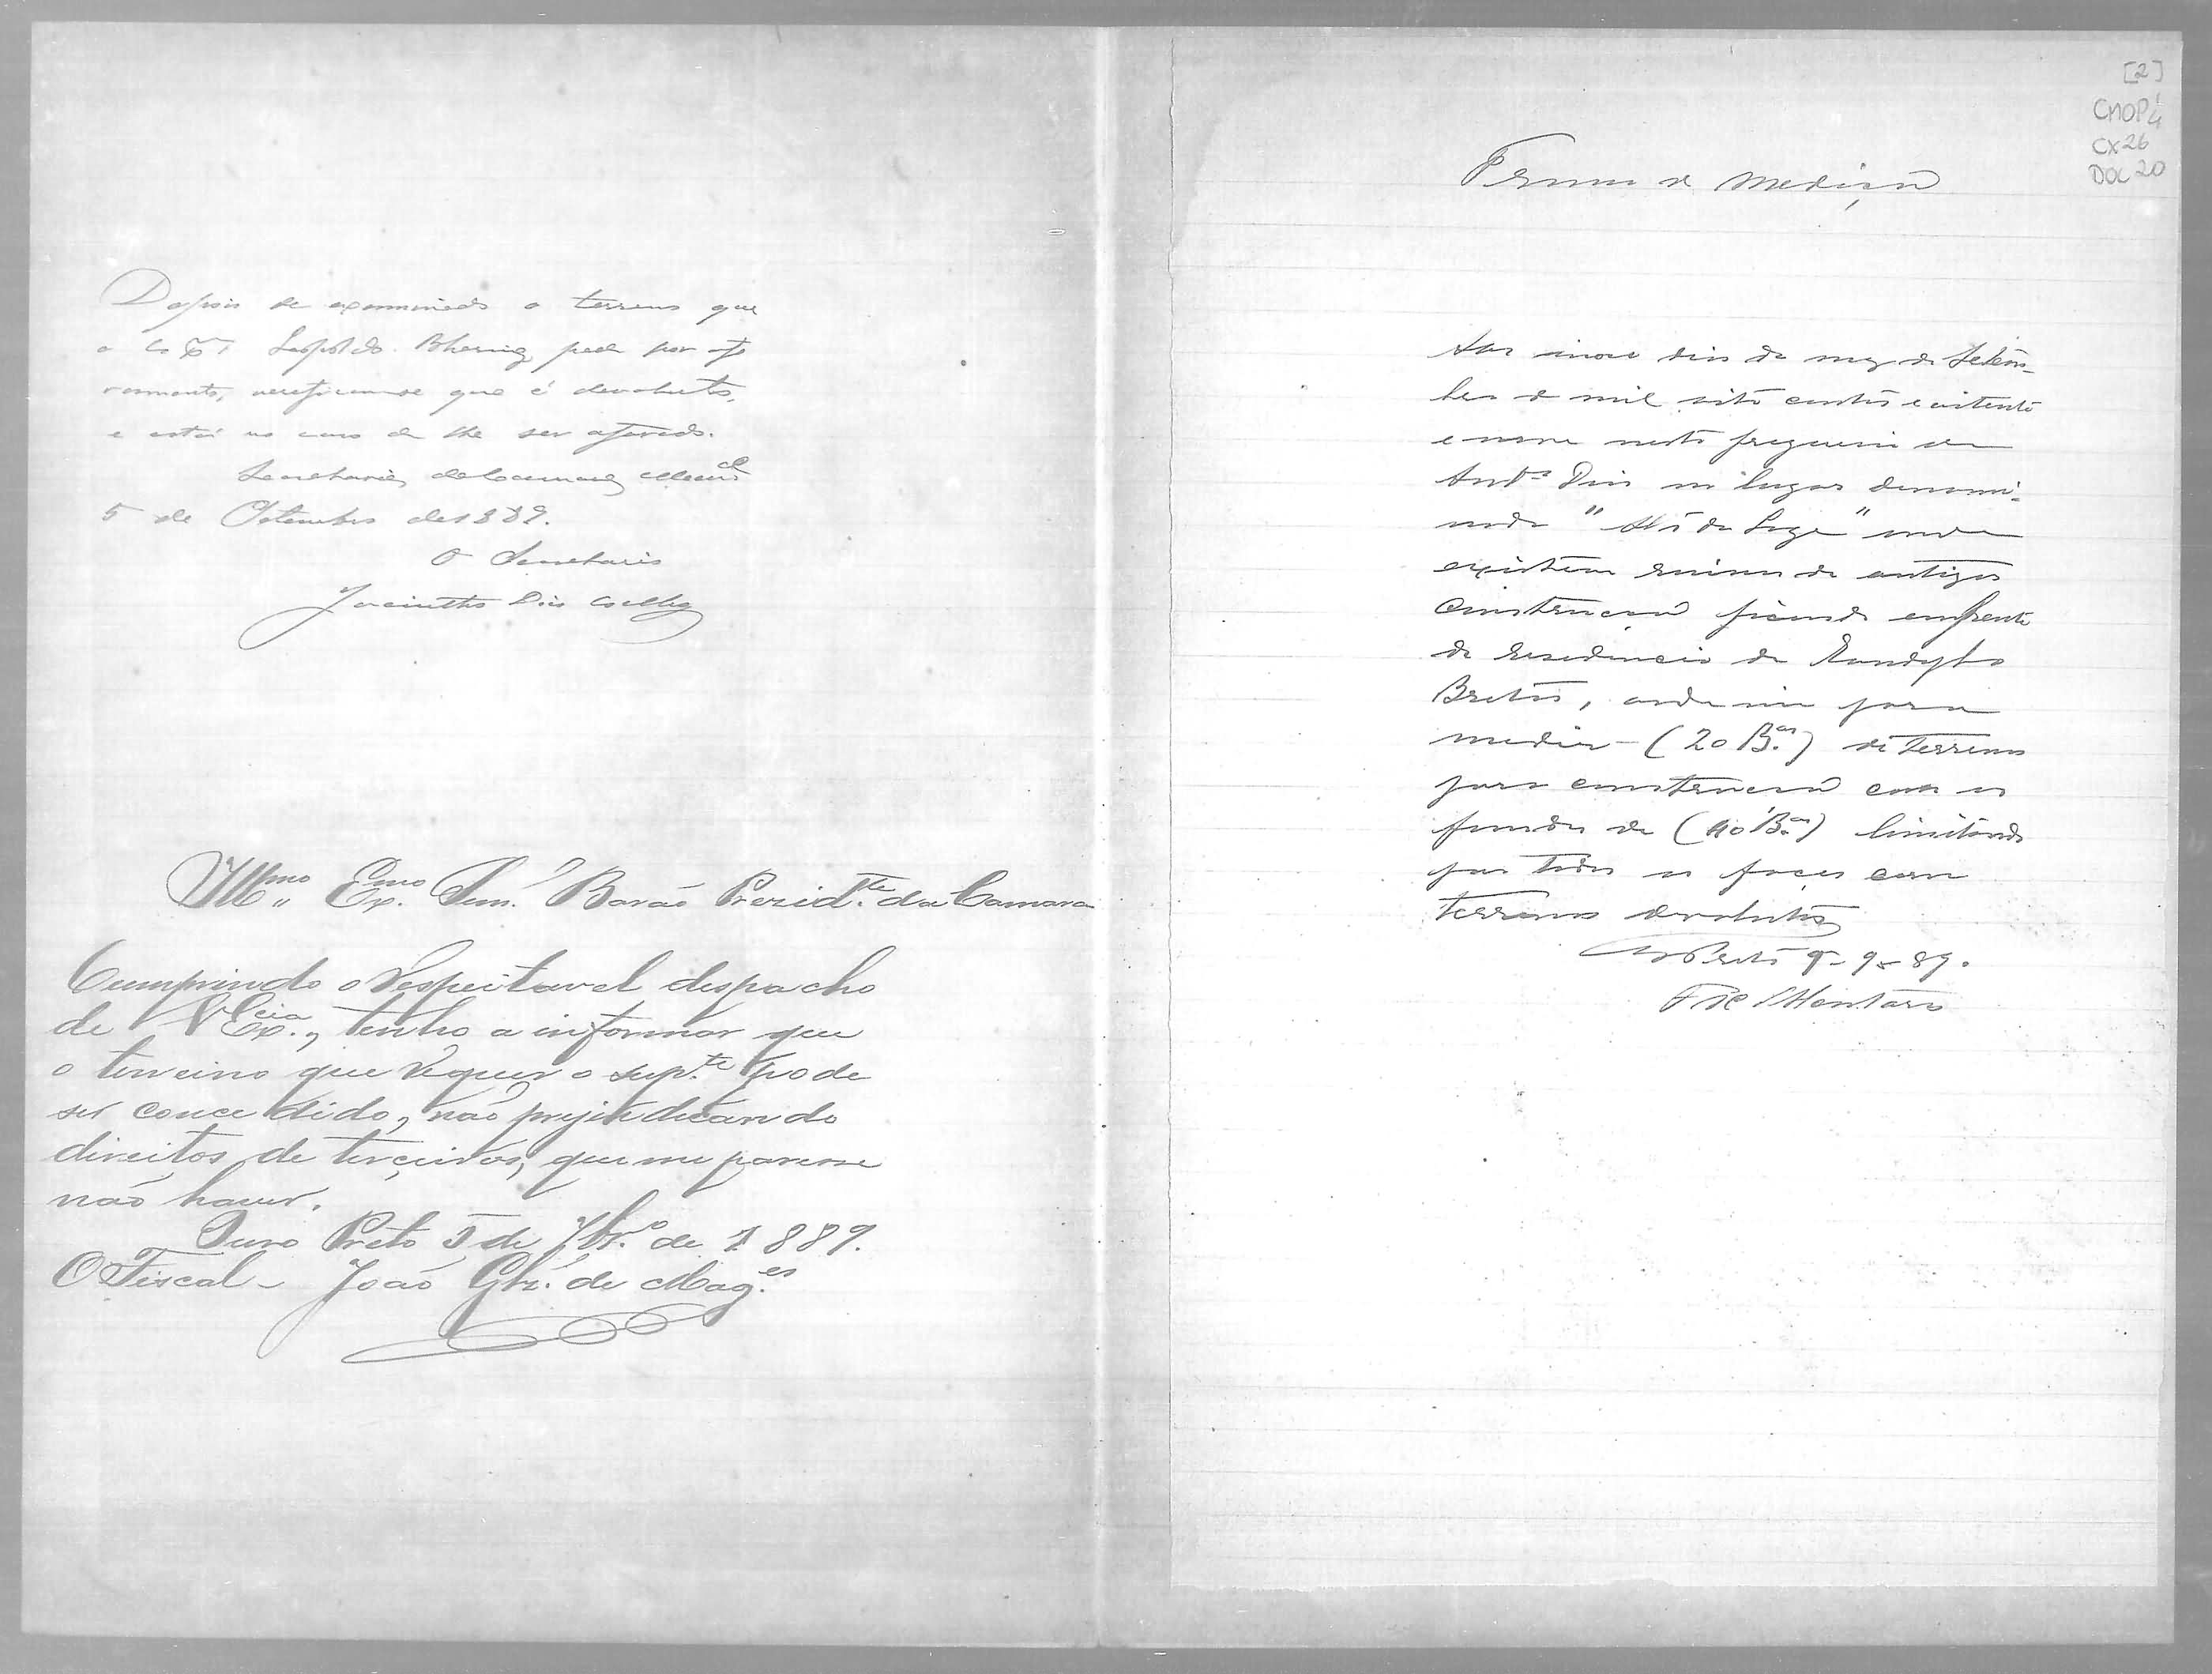 Depois de examinado o terreno que
o Leopoldo Bhering pede por afo
ramento, verificou-se que é devoluto,
e está no caso de lhe ser aforado.
Secretaria da Camara
5 de Setembro de 1889.
O Secretario
Jacintho Dias
Illmo,, Exmo. Snr. Barão Prezid.te da Camara
Cumprindo o respeitavel despacho
de V Ex.cia, tenho a informar que
o terreino que requer o sup.te pode
ser concedido, não prejudicando
direitos de terceiros, que me parece
não haver.
Ouro Preto 5 de 7br.o de 1889.
O Fiscal - João Glz. de Mag.es
[2]
CMOP
CX 26
DOC 20
Termo de Medição
Aos nove dias do mez de Setem-
bro de mil oito centos e oitenta
e nove nesta freguesia de
Ant.o Dias no lugar denomi-
nado " da Lage " onde
existem ruinas de antigas
construcção ficando emfrente
da residencia de Randolpho
Bretas, ordem para
medir - (20 B.as) de terreno
para construcção com os
fundos de (40 B.as) limitando
por todas as faces com
terrenos devolutos
O Preto 9-9-89.